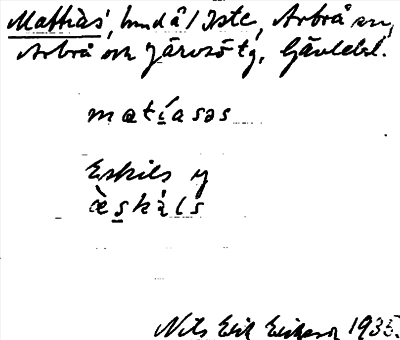 Mathias', hmdå / Iste, Arbrå sn,
Arbrå och Järvsö tg, Gävlebl.
matíasəs
Eskils y
æ̀skíls
Nils Erik Eriksson 1935.